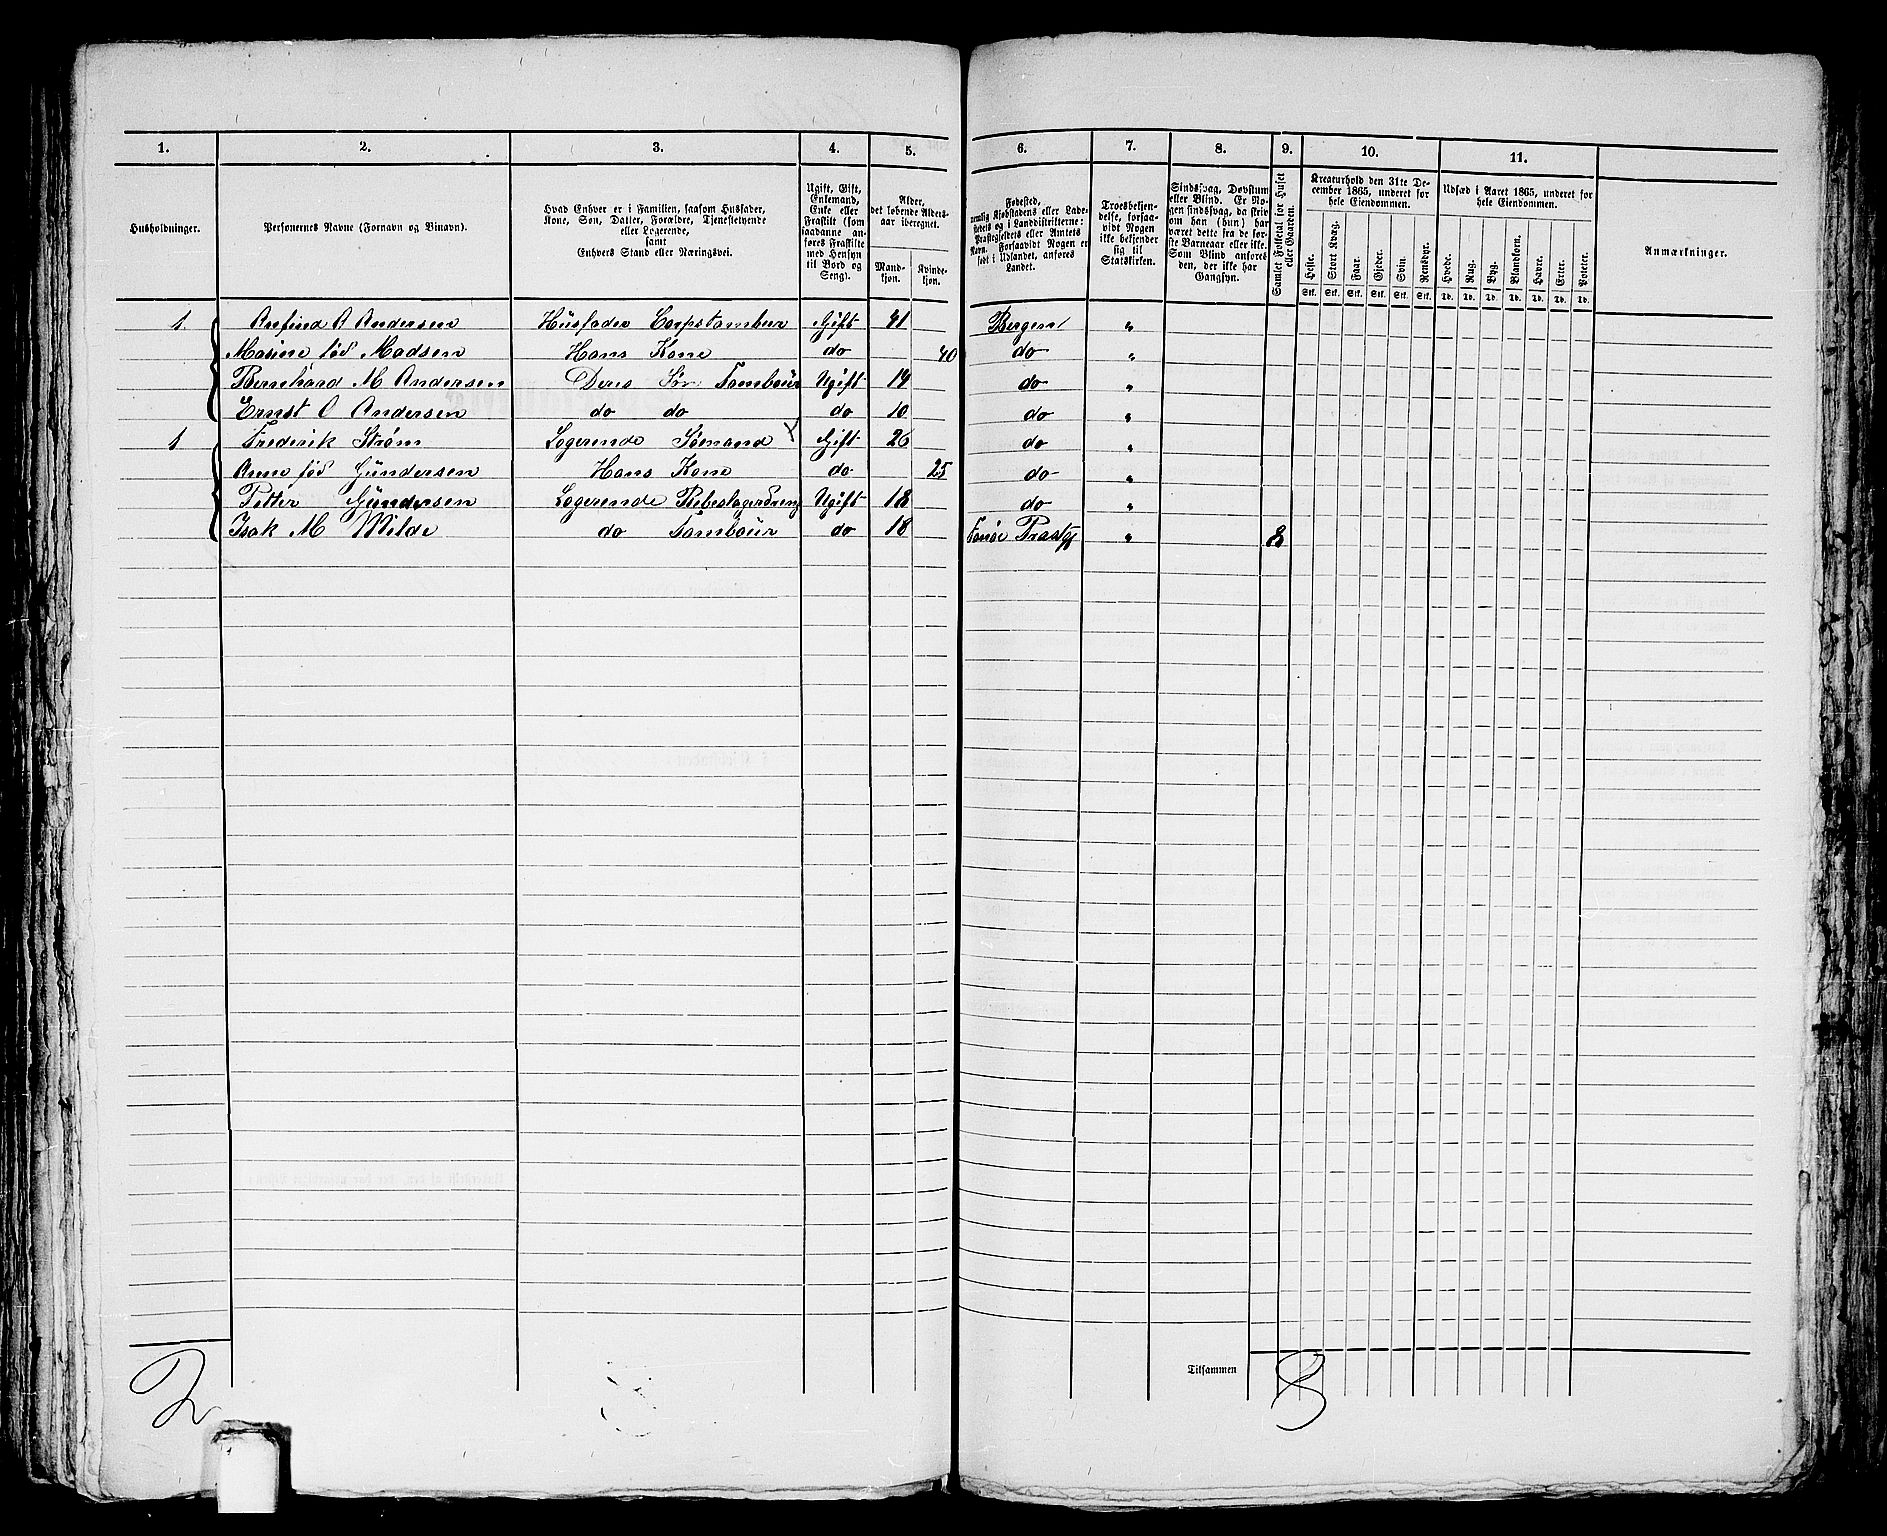 1. 2. 3. 4. 5. 6. 7. 8. 9. 10. 11.
Husholdninger.
Personernes Navne (Fornavn og Binavn).
Hvad Enhver er i Familien, saasom Husfader,
Kone, Søn, Datter, Forældre, Tjenestetyende
eller Logerende,
samt
Enhvers Stand eller Næringsvei.
Ugift, Gift,
Enkemand,
Enke eller
Fraskilt (som
saadanne an-
føres Fraskilte
med Hensyn
til Bord og
Seng).
Alder,
det løbende Alders-
aar iberegnet.
Mand-
kjøn.
Kvinde-
kjøn.
Fødested,
nemlig Kjøbstadens eller Lade-
stedets og i Landdistrikterne:
Præstegjeldets eller Amtets
Navn. Forsaavidt Nogen er
født i Udlandet, anføres
Landet.
Troesbekjen-
delse, forsaa-
vidt Nogen
ikke bekjender
sig til
Statskirken.
Sindssvag, Døvstum
eller Blind. Er No-
gen sindssvag, da skriv
om han (hun) har
været dette fra de før-
ste Barneaar eller ikke.
Som Blind anføres
den, der ikke har
Gangsyn.
Samlet Folketal for Huset
eller Gaarden.
Kreaturhold den 31te De-
cember 1865, underet for
hele Eiendommen.
Heste. Stort Kvæg. Faar. Gjeder. Svin. Rensdyr.
Stk. Stk. Stk. Stk. Stk. Stk.
Udsæd i Aaret 1865, underet for
hele Eiendommen.
Hvede. Rug. Byg. Blandkorn. Havre. Erter. Poteter.
Td. Td. Td. Td. Td. Td. Td.
Anmærkninger.
1. Anfind A Andersen Husfader Corpstambur Gift 41 Bergen "
Masine fød Madsen Hans Kone do 40 do "
Bernhard M Andersen Deres Søn Tambour Ugift 14 do "
Ernst O Andersen do do do 10 do "
1 Frederik Strøm Logerende Sømand X Gift 26 do "
Anne fød Gundersen Hans Kone do 25 do "
Petter Gundersen Logerende Rebslagerdreng Ugift 18 do "
Isak M Wilde do Tambour do 18 Præstgj " 8
Tilsammen
2 8